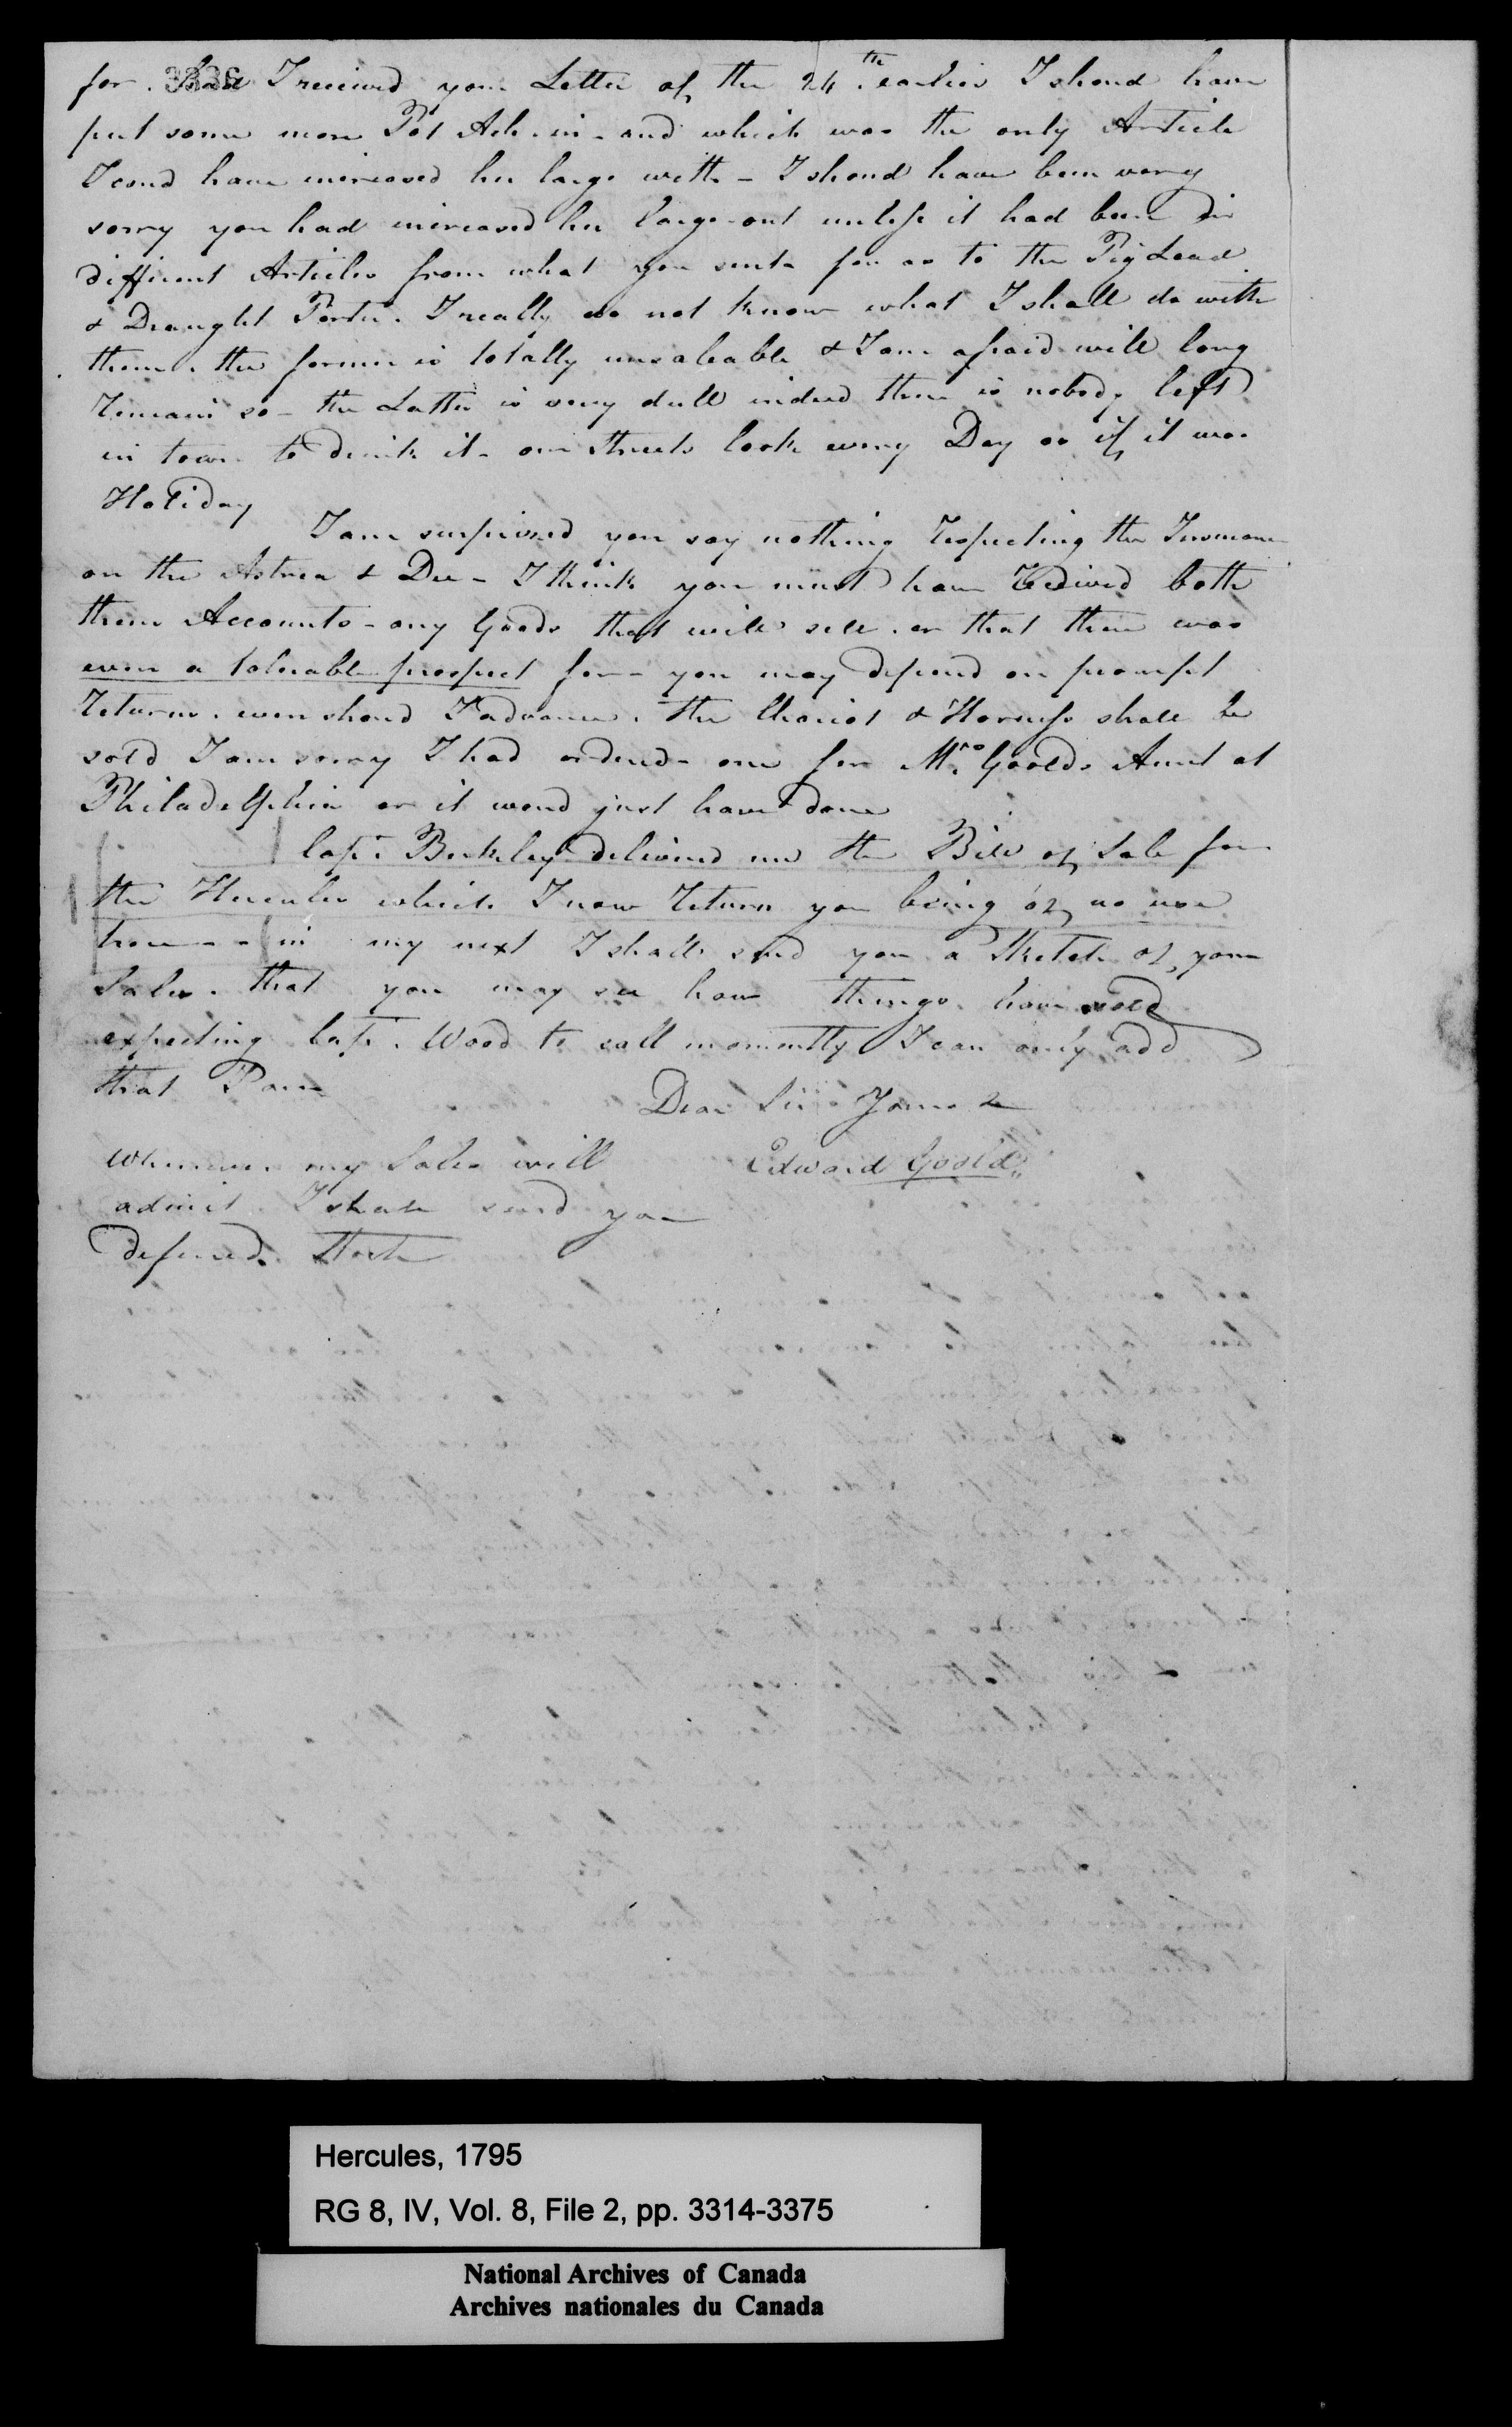 for. Had I received your Letter of the 24th earlier I shoud have
3336
put some more Pot Ash in - and which was the only Article
I coud have increased her Cargo with - I shoud have been very
sorry you had increased her Cargo out unless it had been in
different Articles from what you sent for as to the Pig Lead
& Draught Porter. I really do not know what I shall do with
them. the former is totally unsaleable & I am afraid will long
remain so - the Latter is very dull indeed there is nobody left
in town to drink it - our Streets look every Day as if it was
Holiday
I am surprised you say nothing respecting the Insurance
on the Astrea & Dee - I think you must have received both
these Accounts - any Goods that will sell. or that there was
even a tolerable prospect for - you may depend on prompt
returns. even shoud I advance. the Chariot & Harness shall be
sold I am sorry I had ordered one for Mrs Goolds Aunt at
Philadelphia or it woud just have done
Capt. Berkeley delivered me the Bill of Sale for
the Hercules which I now return you being of no use
here - - in my next I shall send you a Sketch of your
Sales. that you may see how things have sold
expecting Capt. Wood to call momently I can only add
that I am
Dear Sir Yours &
Edward Goold
Whenever my Sales will
admit I shall send you
deferred Stock
Hercules, 1795
RG 8, IV, Vol. 8, File 2, pp. 3314-3375
National Archives of Canada
Archives nationales du Canada